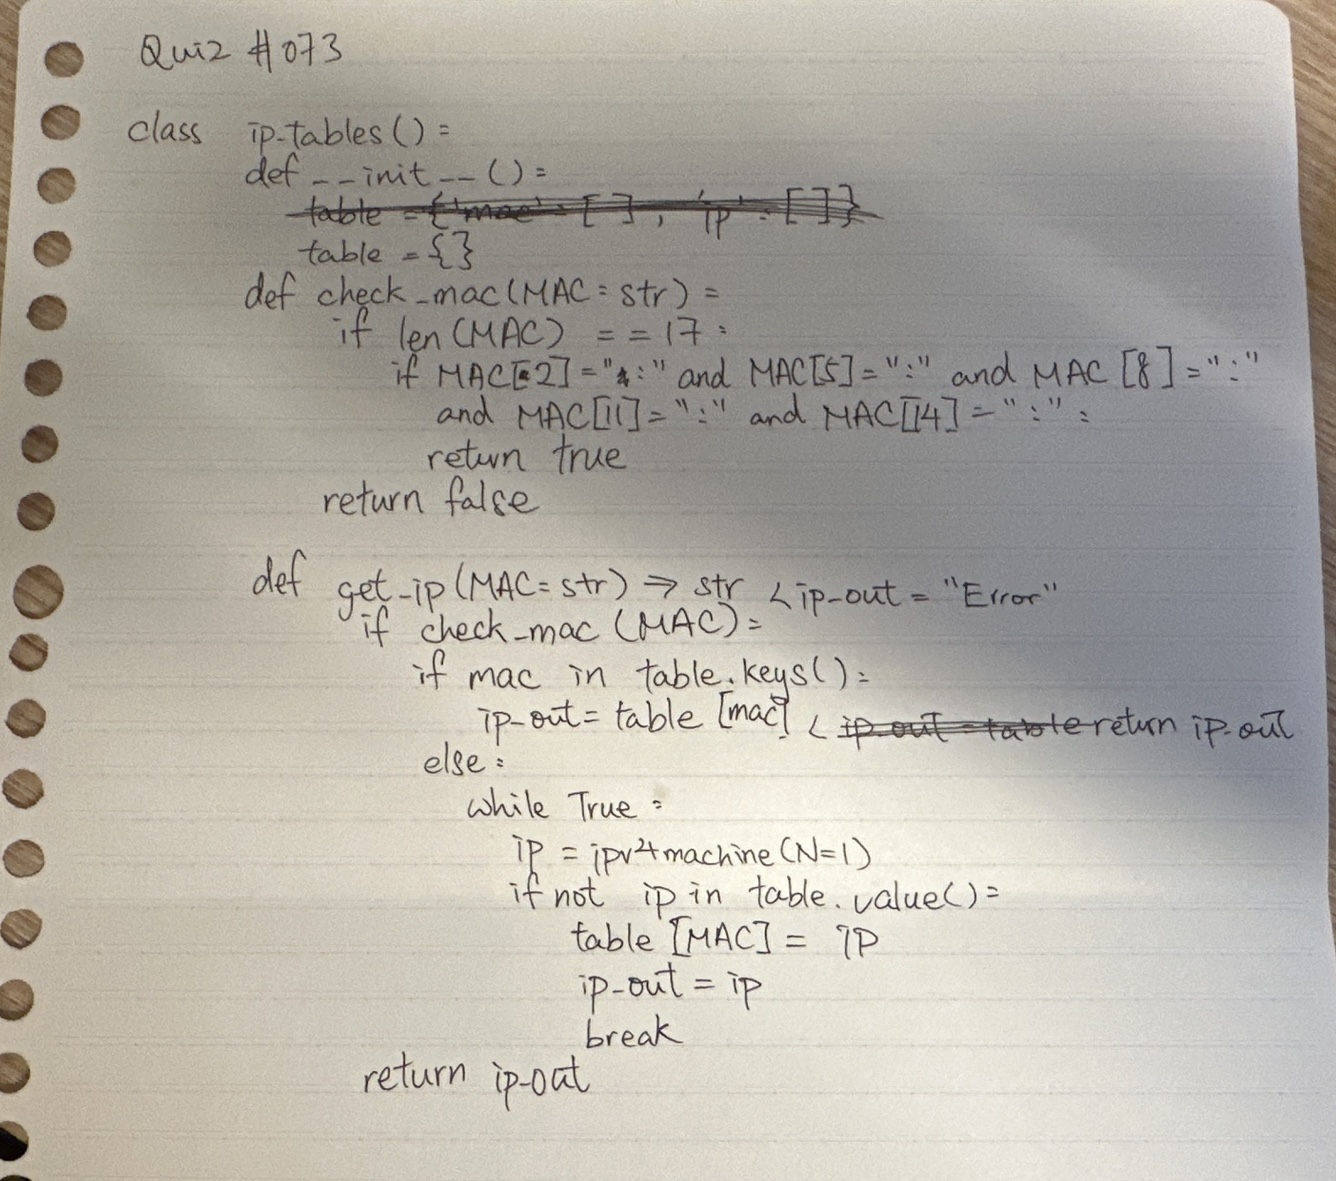 Quiz #073
class ip-tables():
def __init__():
table = {'mac': [], 'ip': []}
table = {}
def check_mac(MAC: str):
if len(MAC) == 17:
if MAC[2]=":" and MAC[5]=":" and MAC[8]=":"
and MAC[11]=":" and MAC[14]=":":
return true
return false
def get_ip(MAC=str) → str < ip-out = "Error"
if check_mac(MAC):
if mac in table.keys():
ip-out = table[mac] < ip-out = table return ip-out
else:
while True:
ip = ipv4machine(N=1)
if not ip in table.value():
table[MAC] = IP
ip-out = ip
break
return ip-out